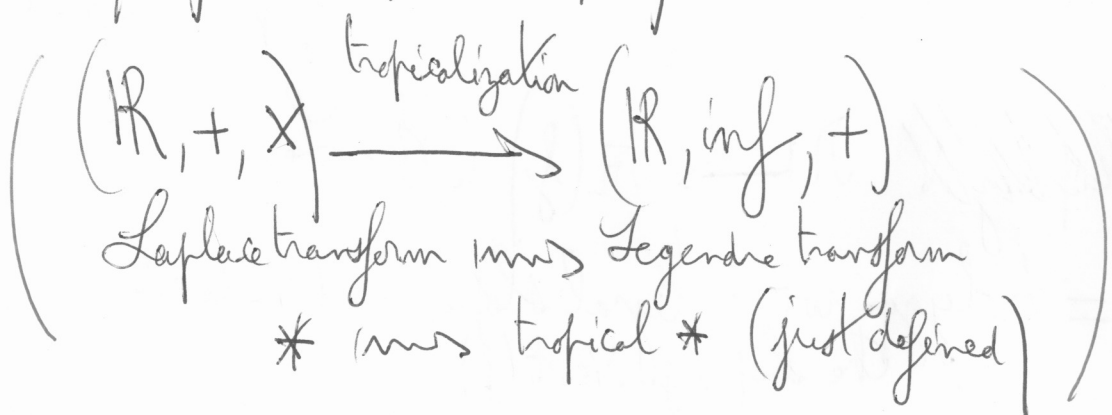 tropicalization
( (ℝ, +, ×) ⟶ (ℝ, inf, +)
Laplace transform ⇝ Legendre transform
* ⇝ tropical * (just defined) )